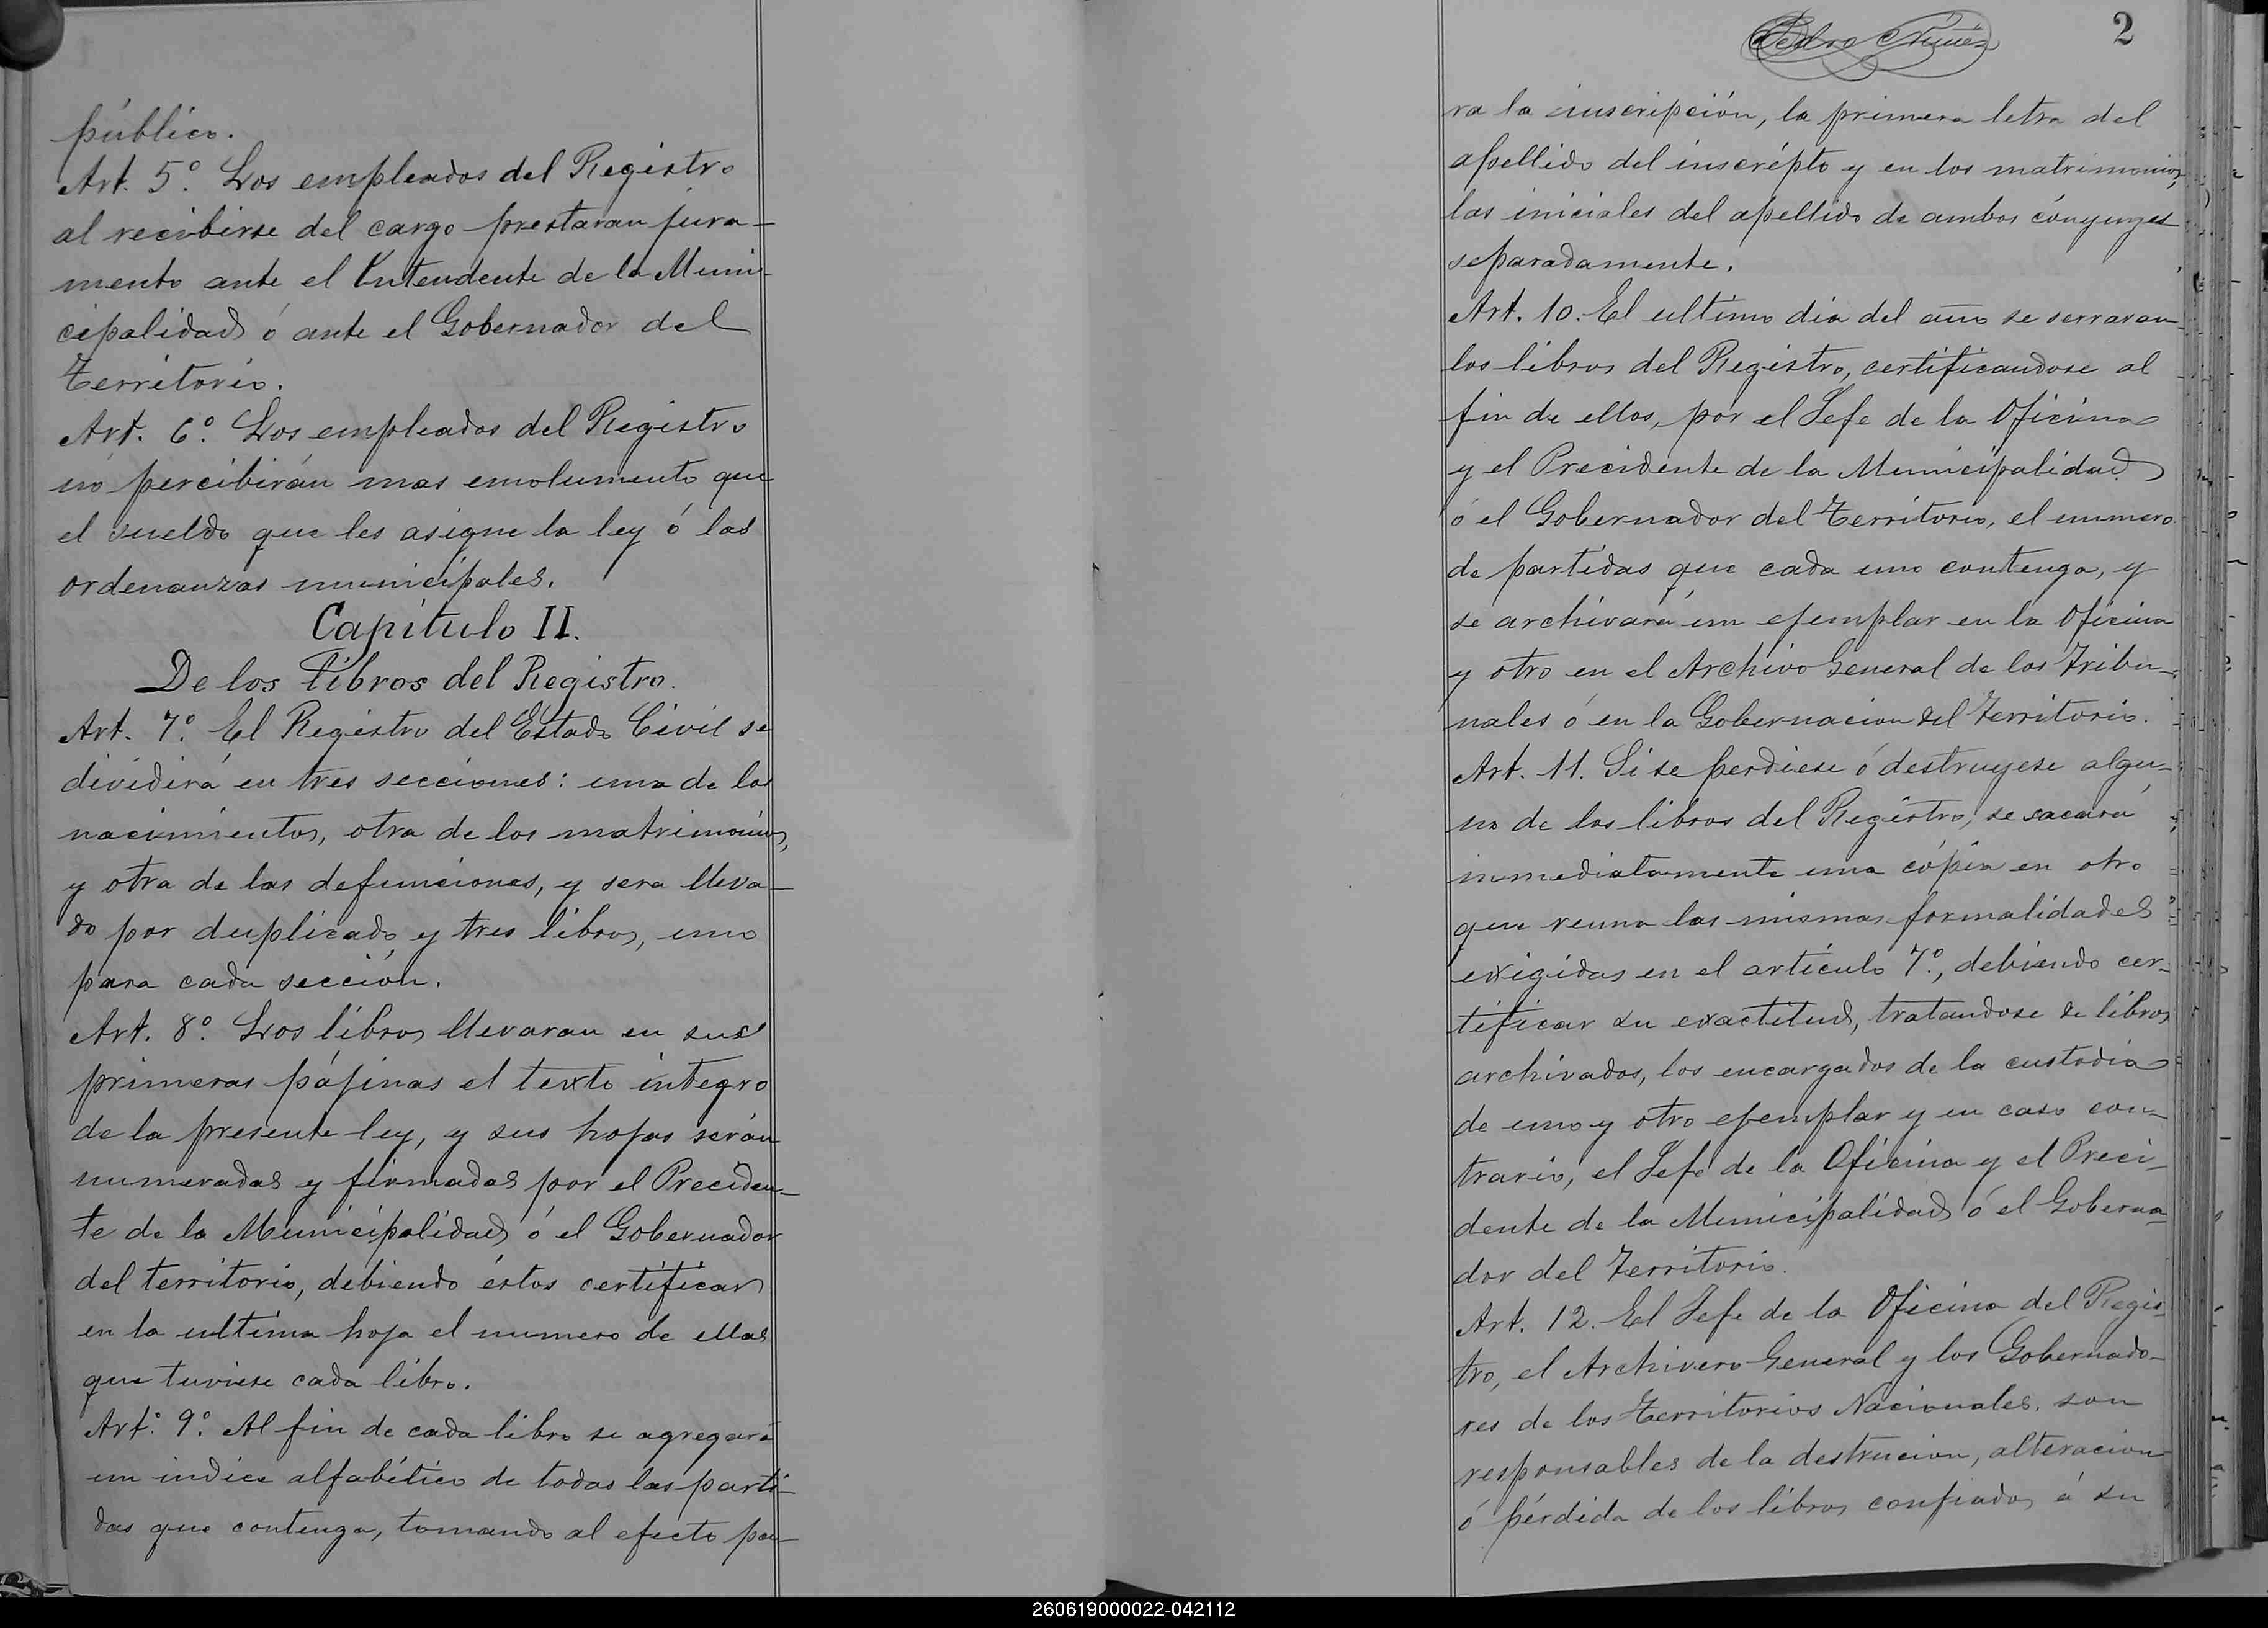 público.
Art. 5º. Los empleados del Registro
al recibirse del cargo prestaran jura-
mento ante el Intendente de la Muni-
cipalidad ó ante el Gobernador del
Territorio.
Art. 6º. Los empleados del Registro
nó percibirán mas emolumento que
el sueldo que les asigne la ley ó las
ordenanzas municipales.
Capítulo II.
De los libros del Registro.
Art. 7º. El Registro del Estado Civil se
dividirá en tres secciones: una de los
nacimientos, otra de los matrimonios,
y otra de las defunciones, y sera lleva-
do por duplicado y tres libros, uno
para cada sección.
Art. 8º. Los libros llevaran en sus
primeras pájinas el texto integro
de la presente ley, y sus hojas serán
numeradas y firmadas por el Preciden-
te de la Municipalidad ó el Gobernador
del territorio, debiendo éstos certificar
en la ultima hoja el numero de ellas
que tuviese cada libro.
Art. 9º. Al fin de cada libro se agregará
un indice alfabético de todas las parti-
das que contenga, tomando al efecto pa-
Pedro Nuñez
2
ra la inscripción, la primera letra del
apellido del inscrépto y en los matrimonios,
las iniciales del apellido de ambos cónyuges
separadamente.
Art. 10. El ultimo dia del año se serraran
los libros del Registro, certificandose al
fin de ellos, por el Jefe de la Oficina
y el Precidente de la Municipalidad
ó el Gobernador del Territorio, el numero
de partidas que cada uno contenga, y
se archivará un ejemplar en la Oficina
y otro en el Archivo General de los Tribu-
nales ó en la Gobernacion del Territorio.
Art. 11. Si se perdiese ó destruyese algu-
no de los libros del Registro, se sacará
inmediatamente una cópia en otro
que reuna las mismas formalidades
exigidas en el artículo 7º., debiendo cer-
tificar su exactitud, tratandose de libros
archivados, los encargados de la custodia
de uno y otro ejemplar y en caso con-
trario, el Jefe de la Oficina y el Preci-
dente de la Municipalidad ó el Goberna-
dor del Territorio.
Art. 12. El Jefe de la Oficina del Regis-
tro, el Archivero General y los Gobernado-
res de los Territorios Nacionales. son
responsables de la destrucion, alteracion
ó pérdida de los libros confiados á su
260619000022-042112